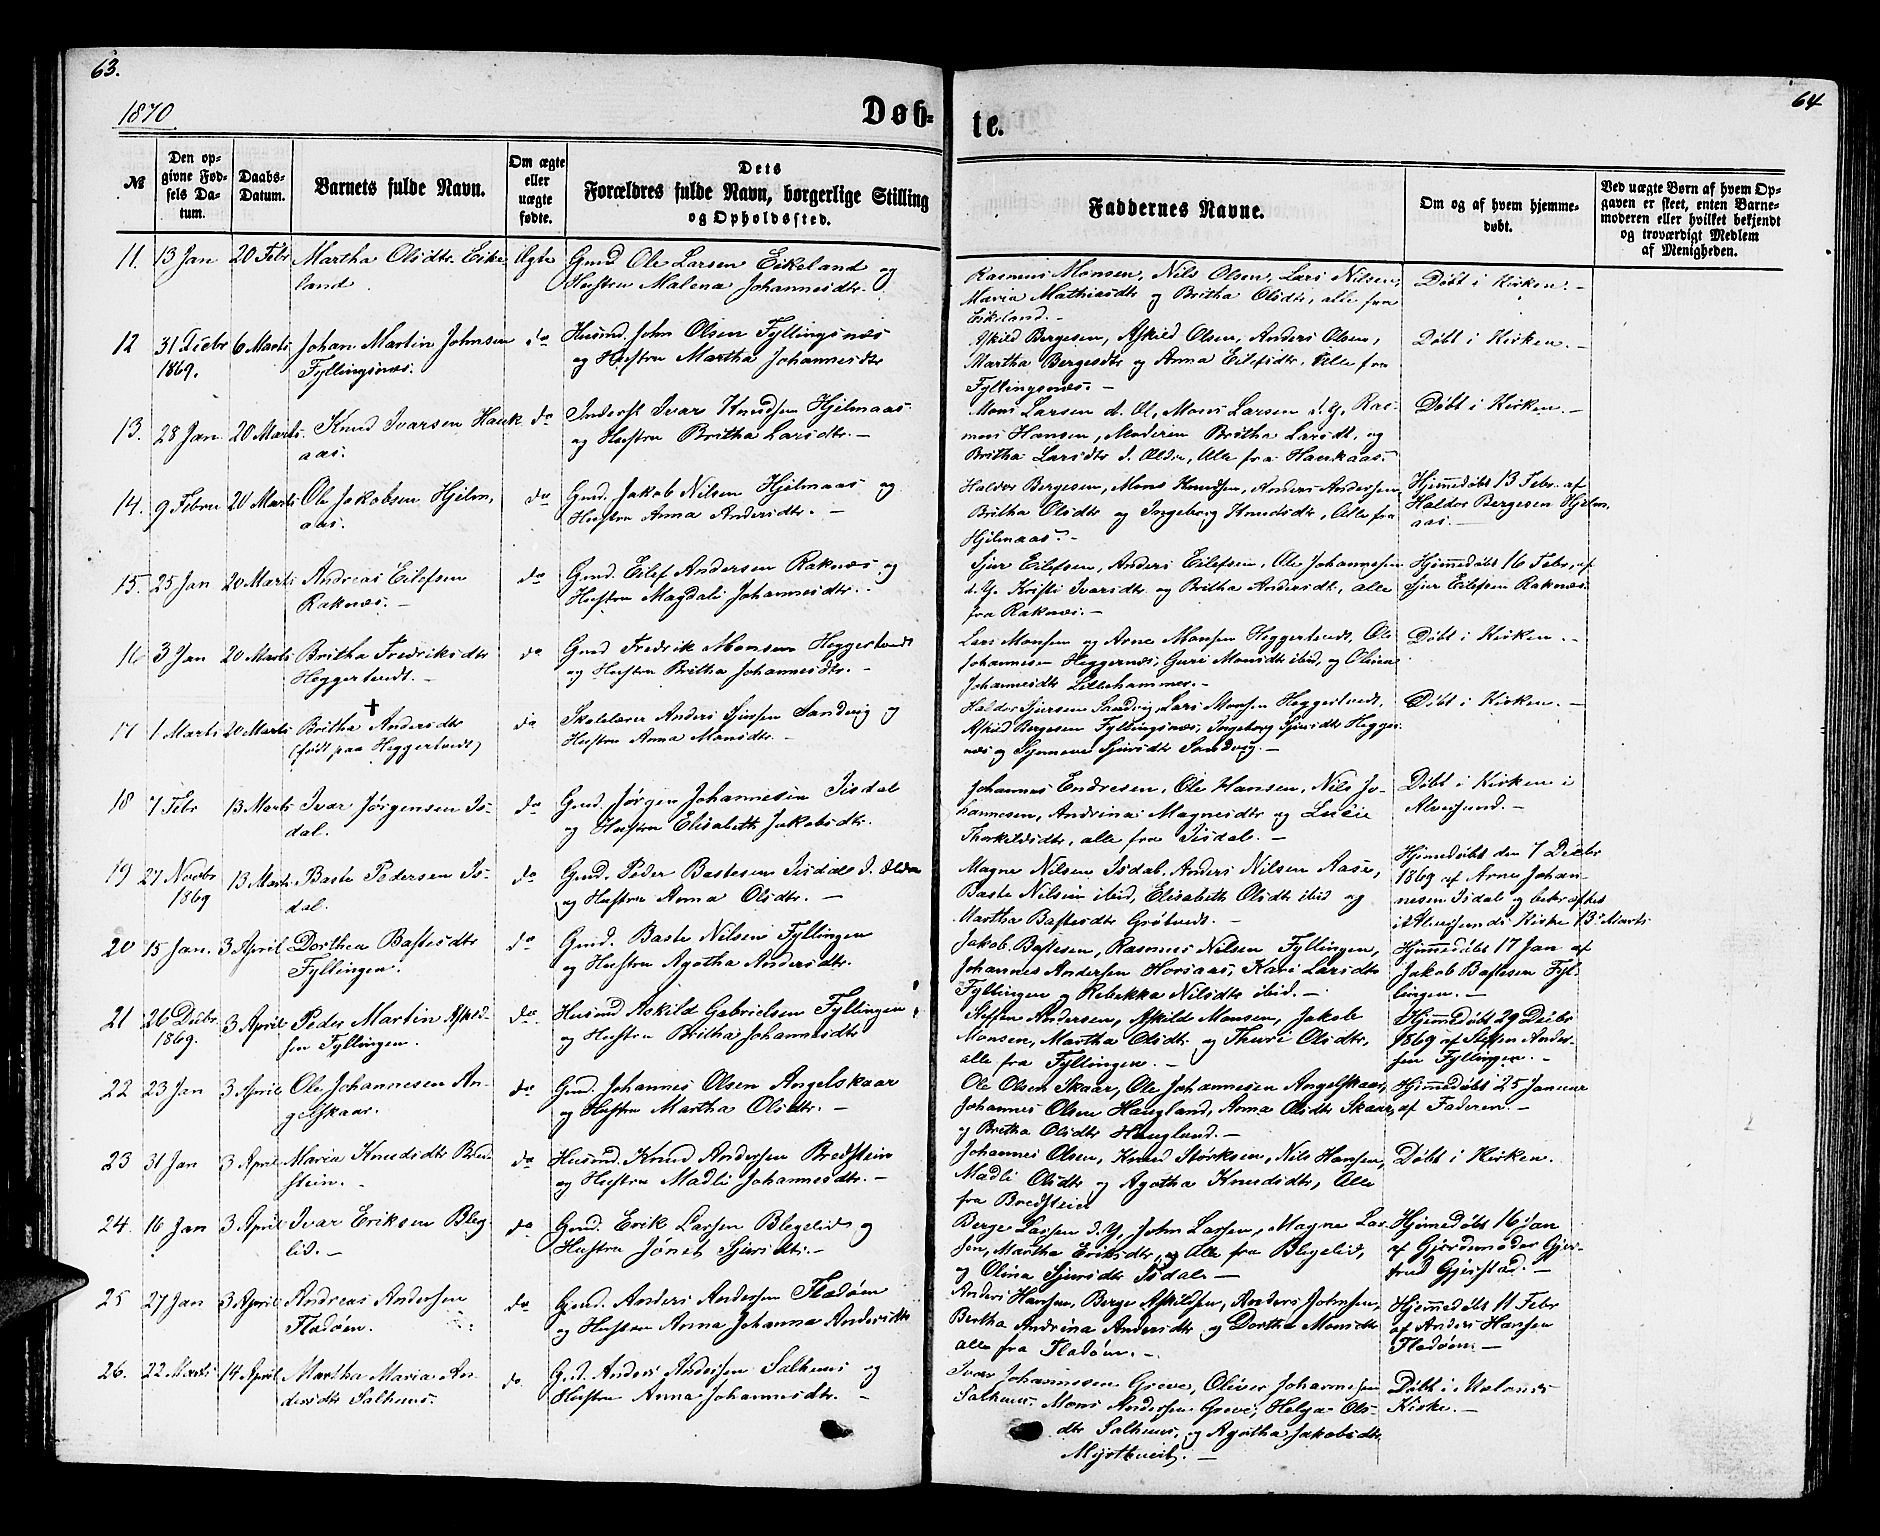 63.
64
1870
Døb-
te.
№
Den op-
givne Fød-
sels Da-
tum.
Daabs-
Datum.
Barnets fulde Navn.
Om ægte
eller
uægte
fødte.
Dets
Forældres fulde Navn, borgerlige Stilling
og Opholdssted.
Faddernes Navne.
Om og af hvem hjemme-
døbt.
Ved uægte Børn af hvem Op-
gaven er skeet, enten Barne-
moderen eller hvilket bekjendt
og troværdigt Medlem
af Menigheden.
11. 13 Jan 20 Febr Martha Olsdtr. Eike
land.
Ægte
Gmd Ole Larsen Eikeland og
Hustru Malena Johannesdtr.
Rasmus Monsen, Nils Olsen, Lars Nilsen,
Maria Mathiasdtr og Britha Olsdtr, alle fra
Eikeland. –
Døbt i Kirken. –
12 31 Decbr 6 Marts Johan Martin Johnsen
1869. Fyllingsnæs.
do
Husmd. John Olsen Fyllingsnæs
og Hustru Martha Johannesdtr
Askild Bergesen, Askild Olsen, Anders Olsen,
Martha Bergesdtr og Anna Eilefsdtr, Alle fra
Fyllingsnæs. –
Døbt i Kirken. –
13. 28 Jan. 20 Marts. Knud Ivarsen Hauk
aas.
do
Inderst Ivar Knudsen Hjelmaas
og Hustru Britha Larsdtr. –
Mons Larsen d. Æl, Mons Larsen d. Y. Ras-
mus Hansen, Moderen Britha Larsdt, og
Britha Larsdtr d. Ældre, Alle fra Haukaas.
Døbt i Kirken. –
14. 9 Febru 20 Marts Ole Jakobsen Hjelm,
aas.
do
Gmd. Jakob Nilsen Hjelmaas og
Hustru Anna Andersdtr. –
Haldor Bergesen, Mons Knudsen, Anders Andersen
Britha Olsdtr og Ingeborg Knudsdtr, Alle fra
Hjelmaas. –
Hjemmedøbt 13 Febr. af
Haldor Bergesen Hjelm,
aas. –
15. 25 Jan 20 Marts Andreas Eilefsen
Raknæs. –
do
Gmd. Eilef Andersen Raknæs og
Hustru Magdali Johannesdtr. –
Sjur Eilefsen, Anders Eilefsen, Ole Johannesen
d. Y. Kristi Ivarsdtr og Britha Andersdt, alle
fra Raknæs. –
Hjemmedøbt 16 Febr. af
Sjur Eilefsen Raknæs.
16 3 Jan 20 Marts Britha Fredriksdtr
Heggertvedt. –
do
Gmd Fredrik Monsen Heggertvedt
og Hustru Britha Johannesdtr. –
Lars Monsen og Arne Monsen Heggertvedt, Ole
Johannesen Heggernæs, Guri Monsdtr ibid, og Oline
Johannesdtr Littlehammer. –
Døbt i Kirken. –
17 1 Marts 20 Marts Britha Andersdtr †
(født paa Heggertvedt)
do
Skolelærer Anders Sjursen Sandvig og
Hustru Anna Monsdtr –
Haldor Sjursen Sandvig, Lars Monsen Heggertvedt,
Askild Bergesen Fyllingsnæs, Ingeborg Sjursdtr Hegger
næs og Synneve Sjursdtr Sandvig. –
Døbt i Kirken. –
18 7 Febr 13 Marts Ivar Jørgensen Is-
dal.
do
Gmd. Jørgen Johannesen Iisdal
og Hustru Elisabeth Jakobsdtr.
Johannes Endresen, Ole Hansen, Nils Jo-
hannesen, Andrina Magnesdtr og Lucie
Thorkildsdtr, alle fra Iisdal. –
Døbt i Kirken i
Alversund. –
19 27 Novbr 13 Marts Baste Pedersen Is-
1869 dal.
do
Gmd. Peder Bastesen Iisdal d. Ældre
og Hustru Anna Olsdtr. –
Magne Nilsen Isdal, Anders Nilsen Aase,
Baste Nilsen ibid, Elisabeth Olsdtr ibid og
Martha Bastesdtr Grøtvedt. –
Hjemmedøbt den 7 Decbr
1869 af Arne Johan-
nesen Isdal og bekræftet
i Alversunds Kirke 13 Marts
20 15 Jan. 3 April Dorthea Bastesdtr
Fyllingen.
do
Gmd. Baste Nilsen Fyllingen
og Hustru Agatha Andersdtr.
Jakob Bastesen, Rasmus Nilsen Fyllingen,
Johannes Andersen Horsaas, Kari Larsdtr
Fyllingen og Rebekka Nilsdtr ibid. –
Hjemmedøbt 17 Jan af
Jakob Bastesen Fyl-
lingen. –
21 26 Decbr 3 April Peder Martin Askild-
1869. sen Fyllingen.
do
Husmd Askild Gabrielsen Fyllingen
og Hustru Britha Johannesdtr
Steffen Andersen, Askild Monsen, Jakob
Monsen, Martha Olsdtr og Thuri Olsdtr,
alle fra Fyllingen. –
Hjemmedøbt 29 Decbr
1869 af Steffen Ander-
sen Fyllingen. –
22 23 Jan 3 April Ole Johannesen An-
gelskaar.
do
Gmd. Johannes Olsen Angelskaar
og Hustru Martha Olsdtr. –
Ole Olsen Skaar, Ole Johannesen Angelskaar,
Johannes Olsen Haugland, Anna Olsdtr Skaar,
og Britha Olsdtr Haugland. –
Hjemmedøbt 25 Januar
af Faderen. –
23 31 Jan 3 April Maria Knudsdtr Bred
stein. –
do
Husmd. Knud Andersen Bredstein
og Hustru Madli Johannesdtr. –
Johannes Olsen, Knud Størksen, Nils Hansen,
Madli Olsdtr og Agatha Knudsdtr, Alle
fra Bredstein
Døbt i Kirken.
24. 16 Jan 3 April Ivar Eriksen Bleg-
lid. –
do
Gmd. Erik Larsen Blegelid og
Hustru Jonet Sjursdtr. –
Berge Larsen d. Y, John Larsen, Magne Lar-
sen, Martha Eriksdtr, og Alle fra Blegelid,
og Olina Sjursdtr Isdal. –
Hjemmedøbt 16 Jan
af Gjordemoder Gjer-
trud Gjerstad. –
25 27 Jan 3 April Andreas Andersen
Fladøen.
do
Gmd. Anders Andersen Fladøen
og Hustru Anna Johanna Andersdtr
Anders Hansen, Berge Askildsen, Anders Johnsen,
Bertha Andrina Andersdtr og Dortha Monsdtr
alle fra Fladøen. –
Hjemmedøbt 11 Febr
af Anders Hansen
Fladøen. –
26. 22 Marts 14 April Martha Maria An-
dersdtr Salhuus.
do
Gmd. Anders Andersen Salhuus og
Hustru Anna Johannesdtr. –
Ivar Johannesen Greve, Oliver Johannesen
Salhuus, Mons Andersen Greve, Helga Ols-
dtr Salhuus, og Agatha Jakobsdtr
Myrtveit. –
Døbt i
Kirke. –